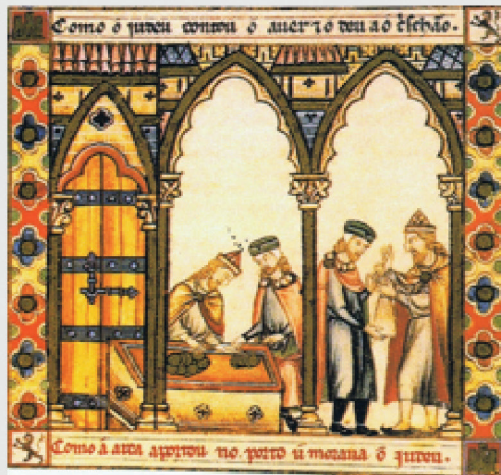 Como o judeu contou o auer ⁊ o deu ao c̃schão.
Como a arca aportou no porto u moraua o judeu.